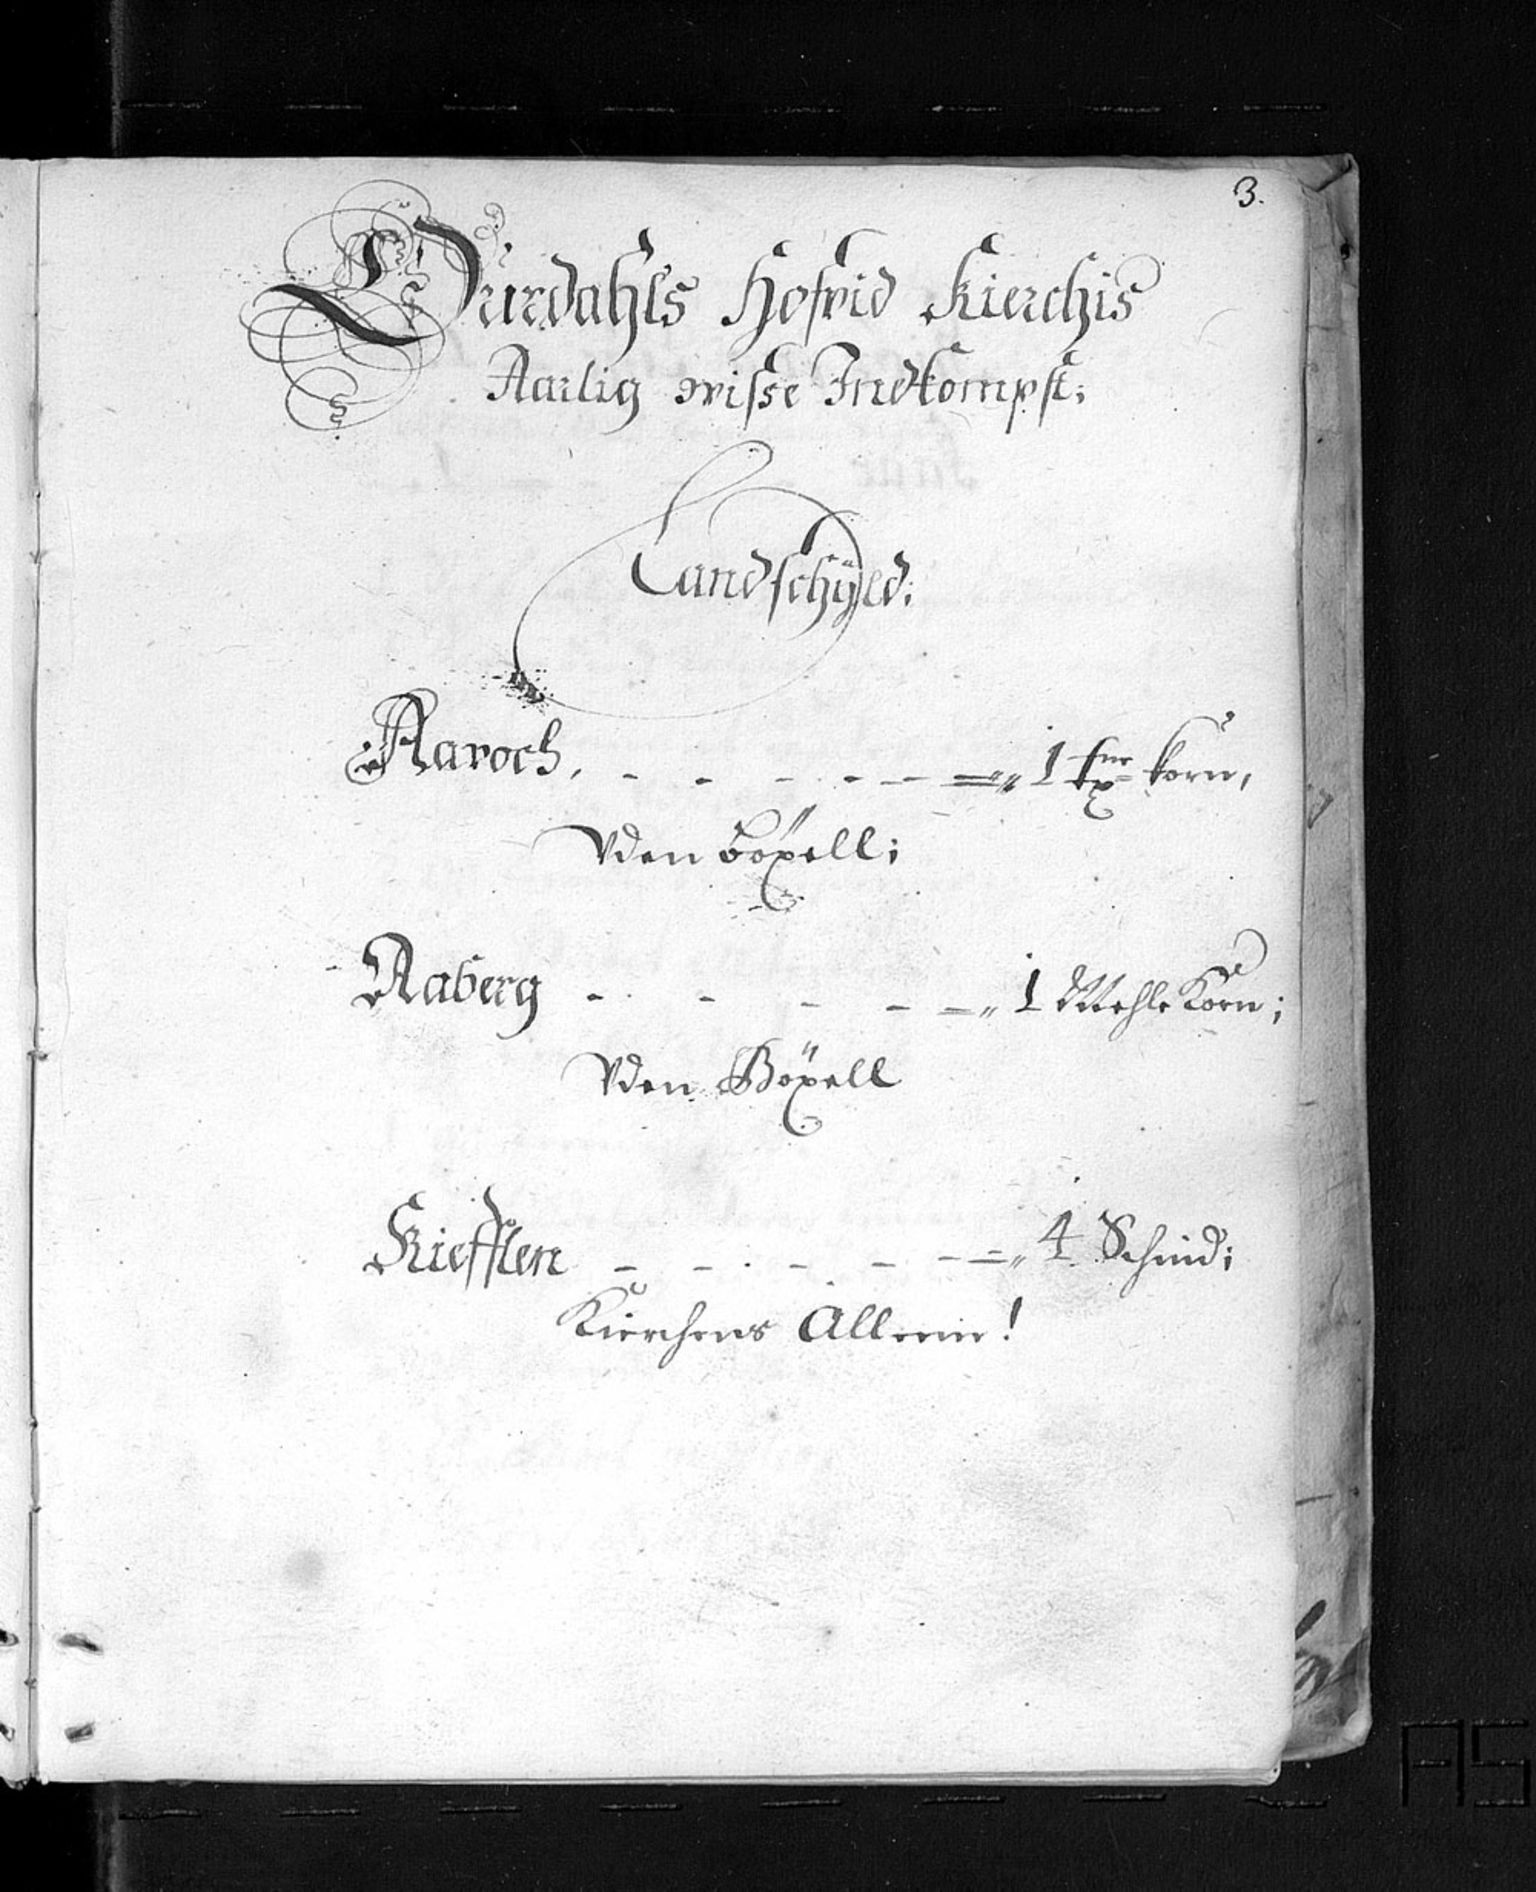 3.
Hurdahls Hofvid Kierchis
Aarlig wisse Indkompst;
Landschÿld;
Aaroch, - - - - - - =„ 1 korn,
Vden böxell;
Aaberg - - - - - =„ 1 Mehle Korn;
Vden Böxell
Kiefflen - - - - - =„ 4 Schind;
Kierchens Alleene!